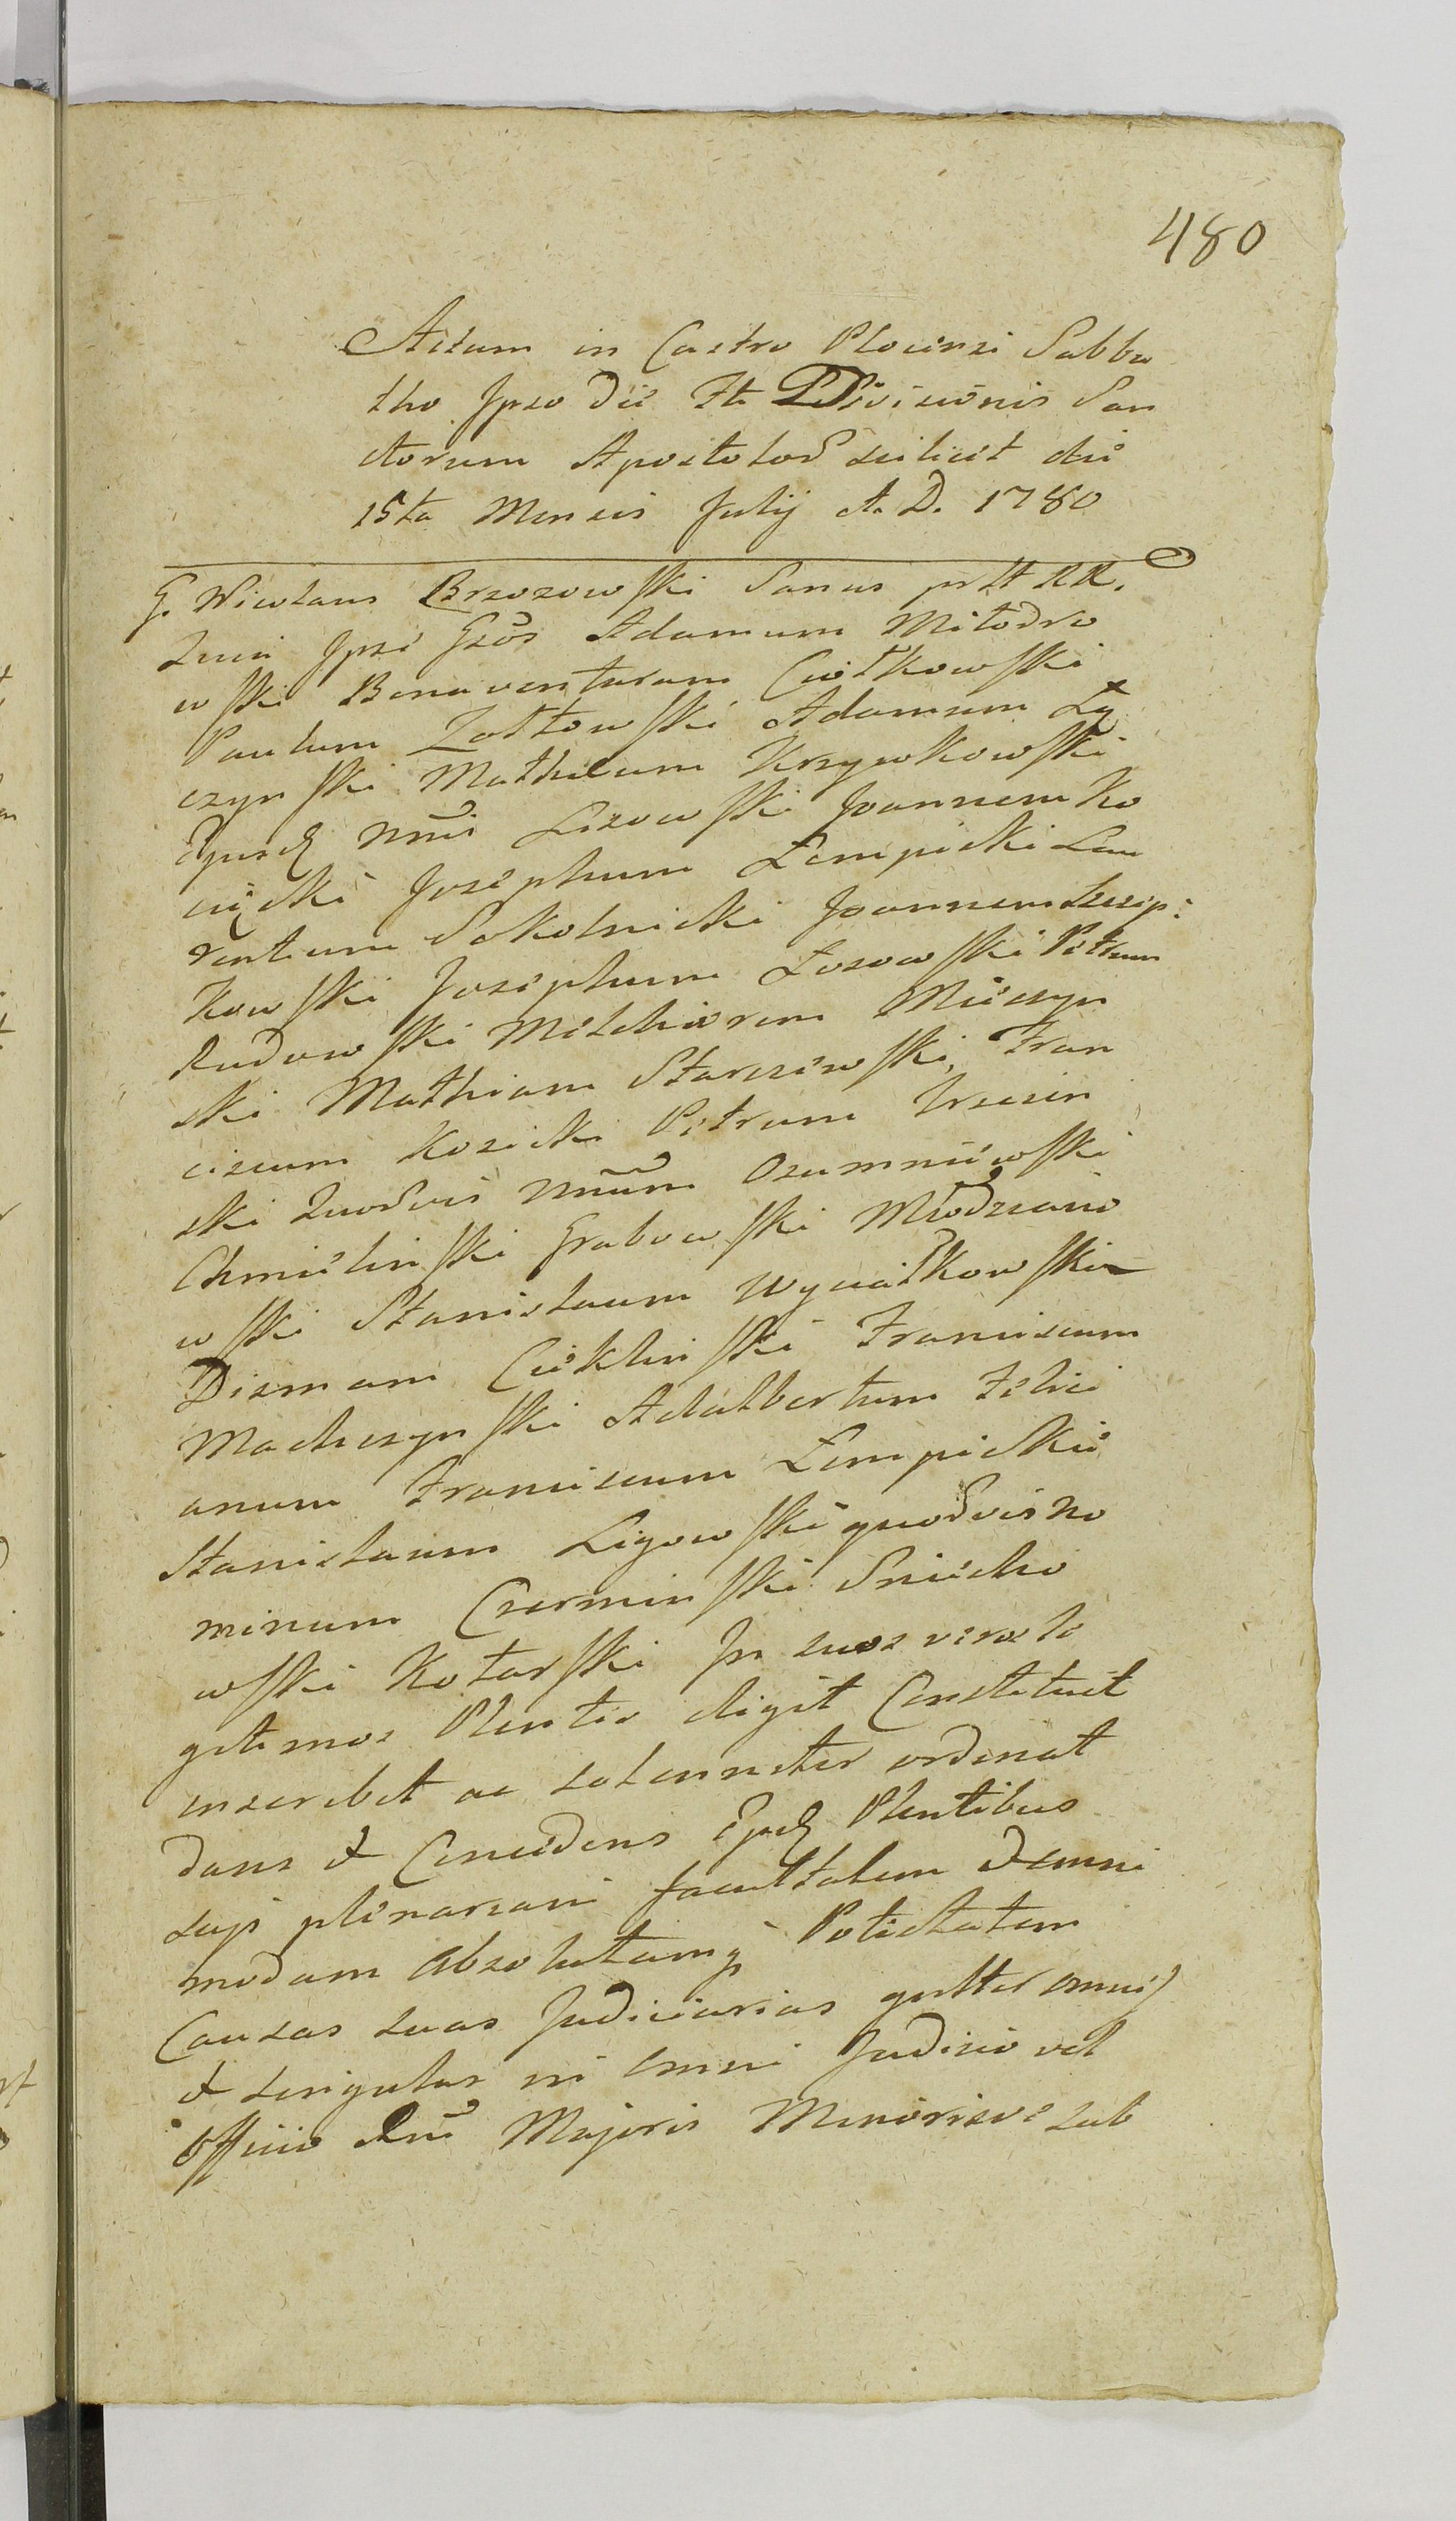 480
Actum in Castro Plocensi Sabba
tho Ipso die Fti Divisionis San
ctorum Apostolor scilicet die
15ta Mensis Julij A. D. 1780
G. Nicolaus Brzozowski Sanus RR.
Quia Ipse Gsos Adamum Miłodro
wski Bonaventuram Ciołkowski
Paulum Zołtowski Adamum Ły
czynski Mathaeum Krzywkowski
Ejusd nnis Lisowski Joannem Ko
cięcki Josephum Łempicki Lau
rentium Sokolnicki Joannem Szczep:
kowski Josephum Łosowski Petrum
Rudowski Melchiorem Mieczyn
ski Mathiam Starczewski, Fran
ciscum Kosicki Petrum Trzcin
ski Quodvis nnum Ozumniewski
Chmielinski Grabowski Młodziano
wski Stanislaum Wyciałkowski
Dismam Cieklinski Franciscum
Machczynski Adalbertum Felici
anum Franciscum Łempickie
Stanislaum Ligowski quodvis No
minum Czerminski Sniecho
wski Kotarski In suos veros le
gitimos Plentes eligit Constituit
inscribit ac solenniter ordinat
dans et Concedens Ejusd Plentibus
suis plenariam facultatem et omni
modam absolutamq Potestatem
Causas suas Judiciarias gnlter omnes
et singulas in omni Judicio vel
Officio Rni Majoris Minorisve sub